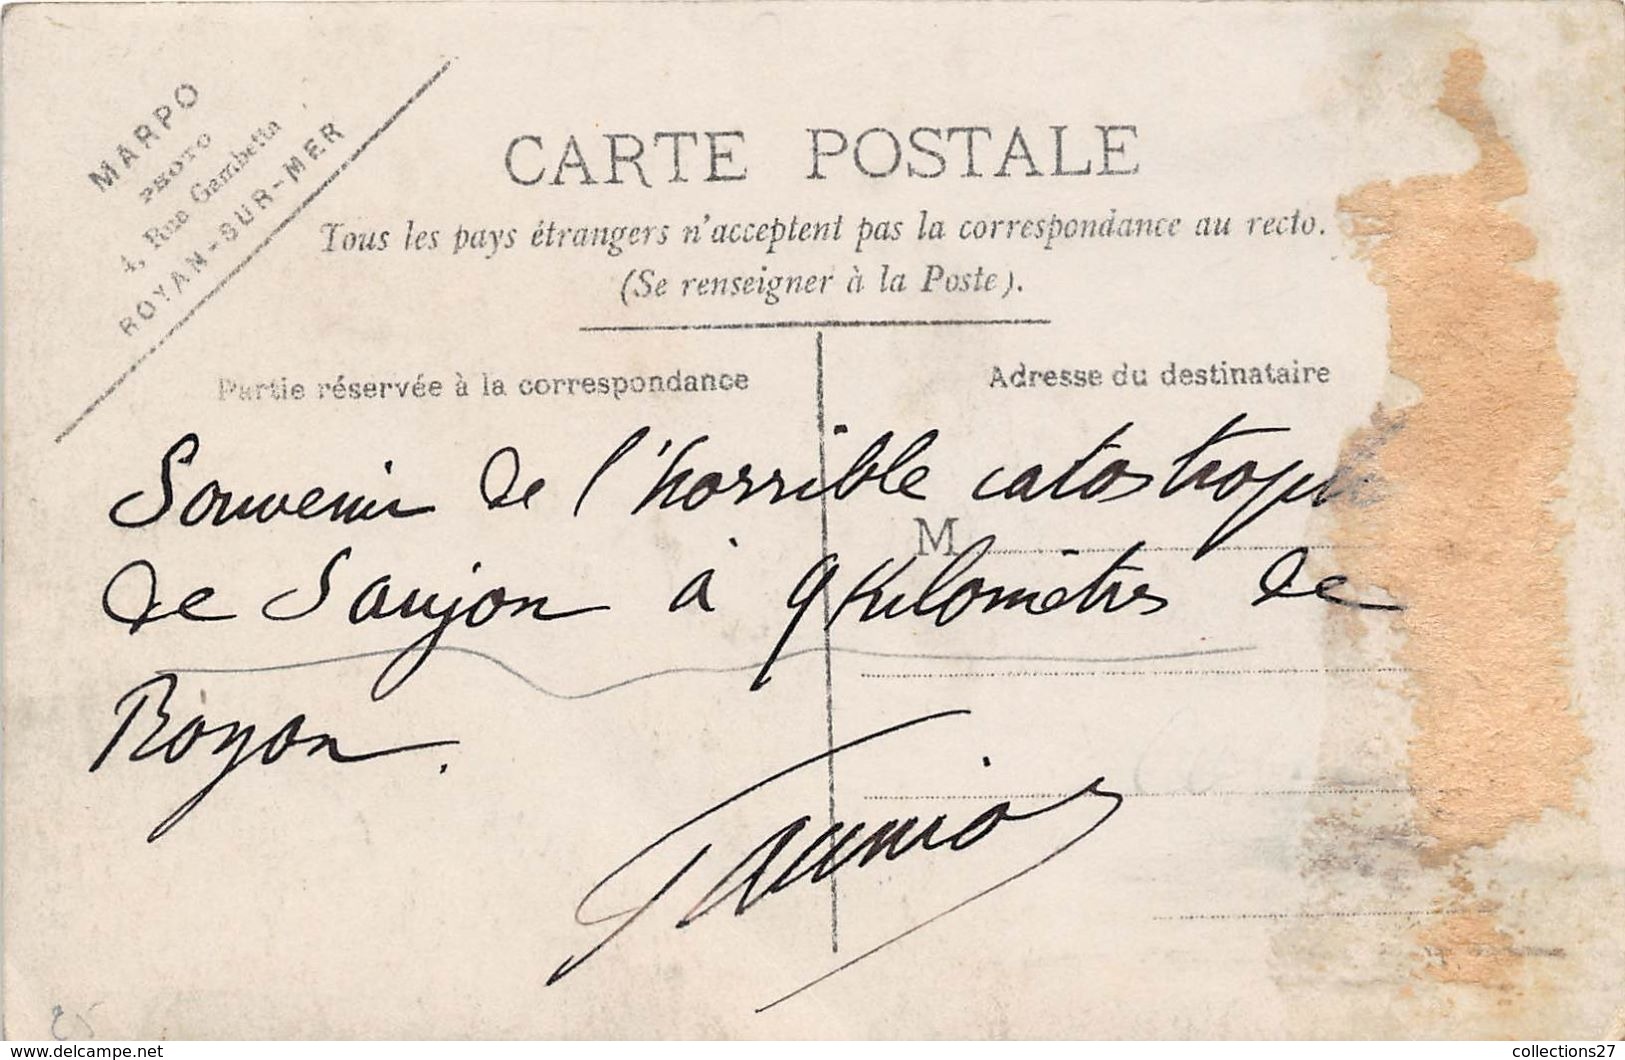 MARPO
PHOTO
4, Rue Gambetta
ROYAN-SUR-MER
CARTE POSTALE
Tous les pays étrangers n'acceptent pas la correspondance au recto.
(Se renseigner à la Poste).
Partie réservée à la correspondance
Adresse du destinataire
M
Souvenir de l'horrible catastrophe
de Saujon à 9 Kilomètres de
Royan.
25
© collections27